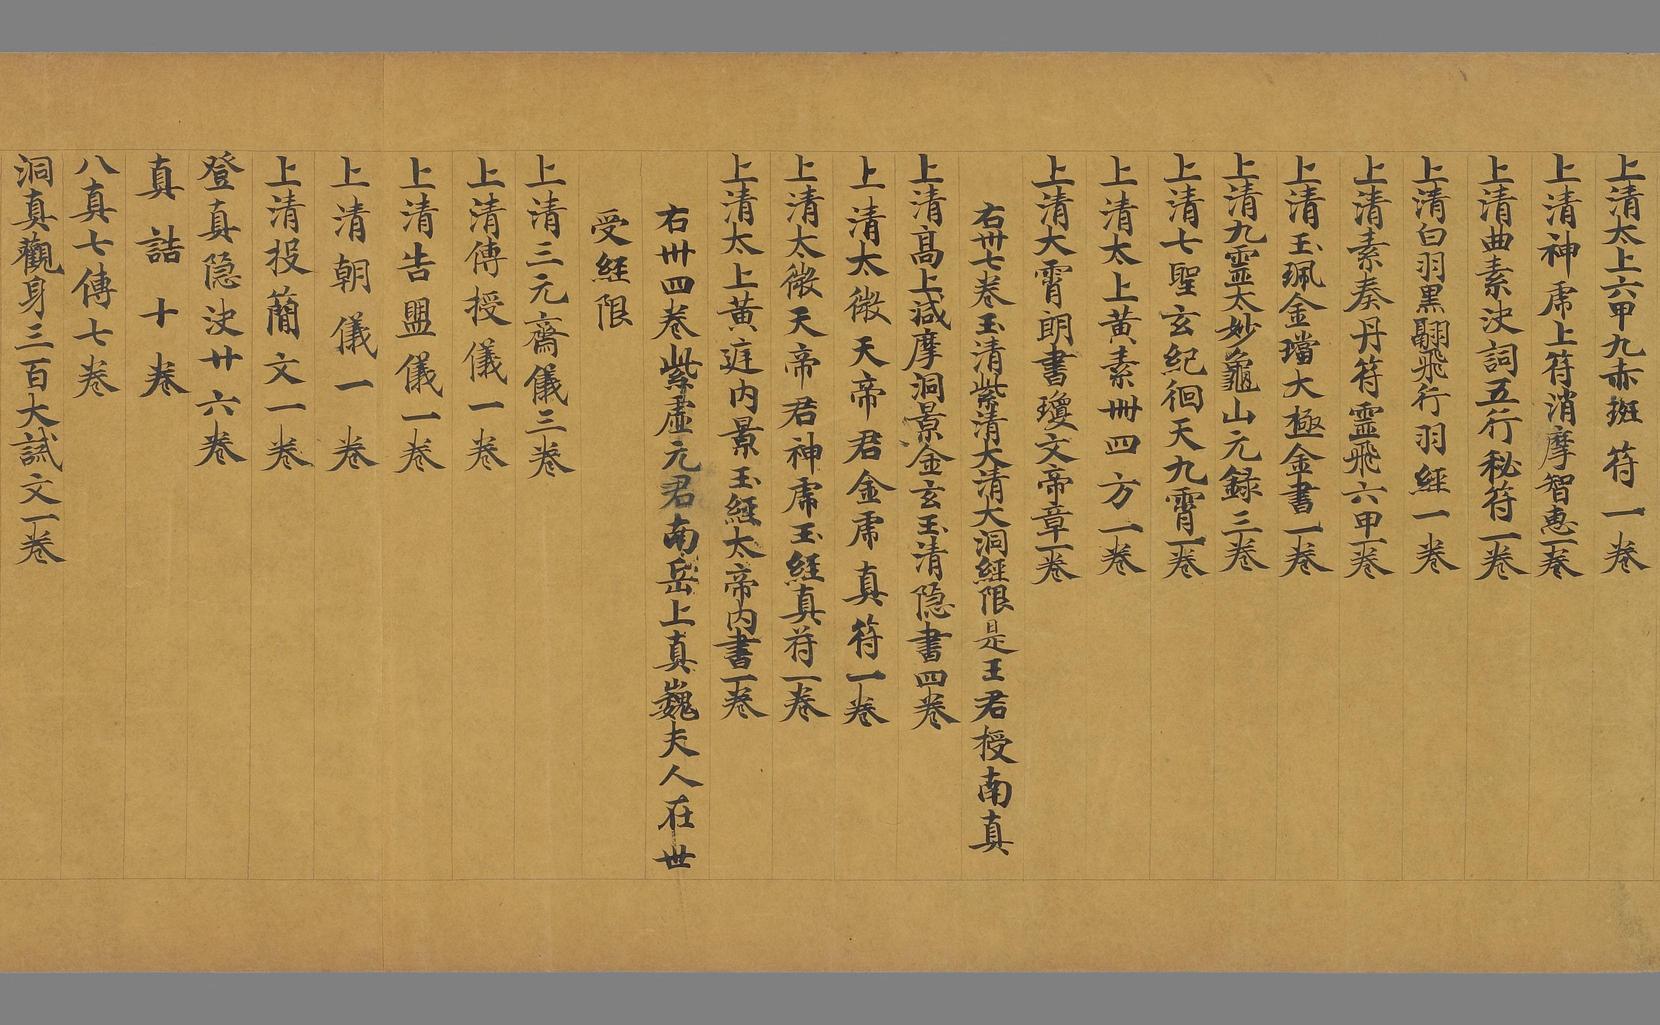 上清太上六甲九赤斑符一卷
上清神虎上符消摩智惠一卷
上清曲素決詞五行秘符一卷
上清白羽黑翮飛行羽經一卷
上清素奏丹符靈飛六甲一卷
上清玉珮金璫大極金書一卷
上清九靈太妙龜山元錄三卷
上清七聖玄紀徊天九霄一卷
上清太上黃素卌四方一卷
上清大霄朗書瓊文帝章一卷
右卅七卷玉清紫清大清大洞經限是王君授南真
上清高上減摩洞景金玄玉清隱書四卷
上清太微天帝君金虎真符一卷
上清太微天帝君神虎玉經真符一卷
上清太上黃庭內景玉經太帝內書一卷
右卌四卷紫虛元君南岳上真巍夫人在世
受經限
上清三元齋儀三卷
上清傳授儀一卷
上清告盟儀一卷
上清朝儀一卷
上清投簡文一卷
登真隱決廿六卷
真誥十卷
八真七傳七卷
洞真觀身三百大誡文一卷